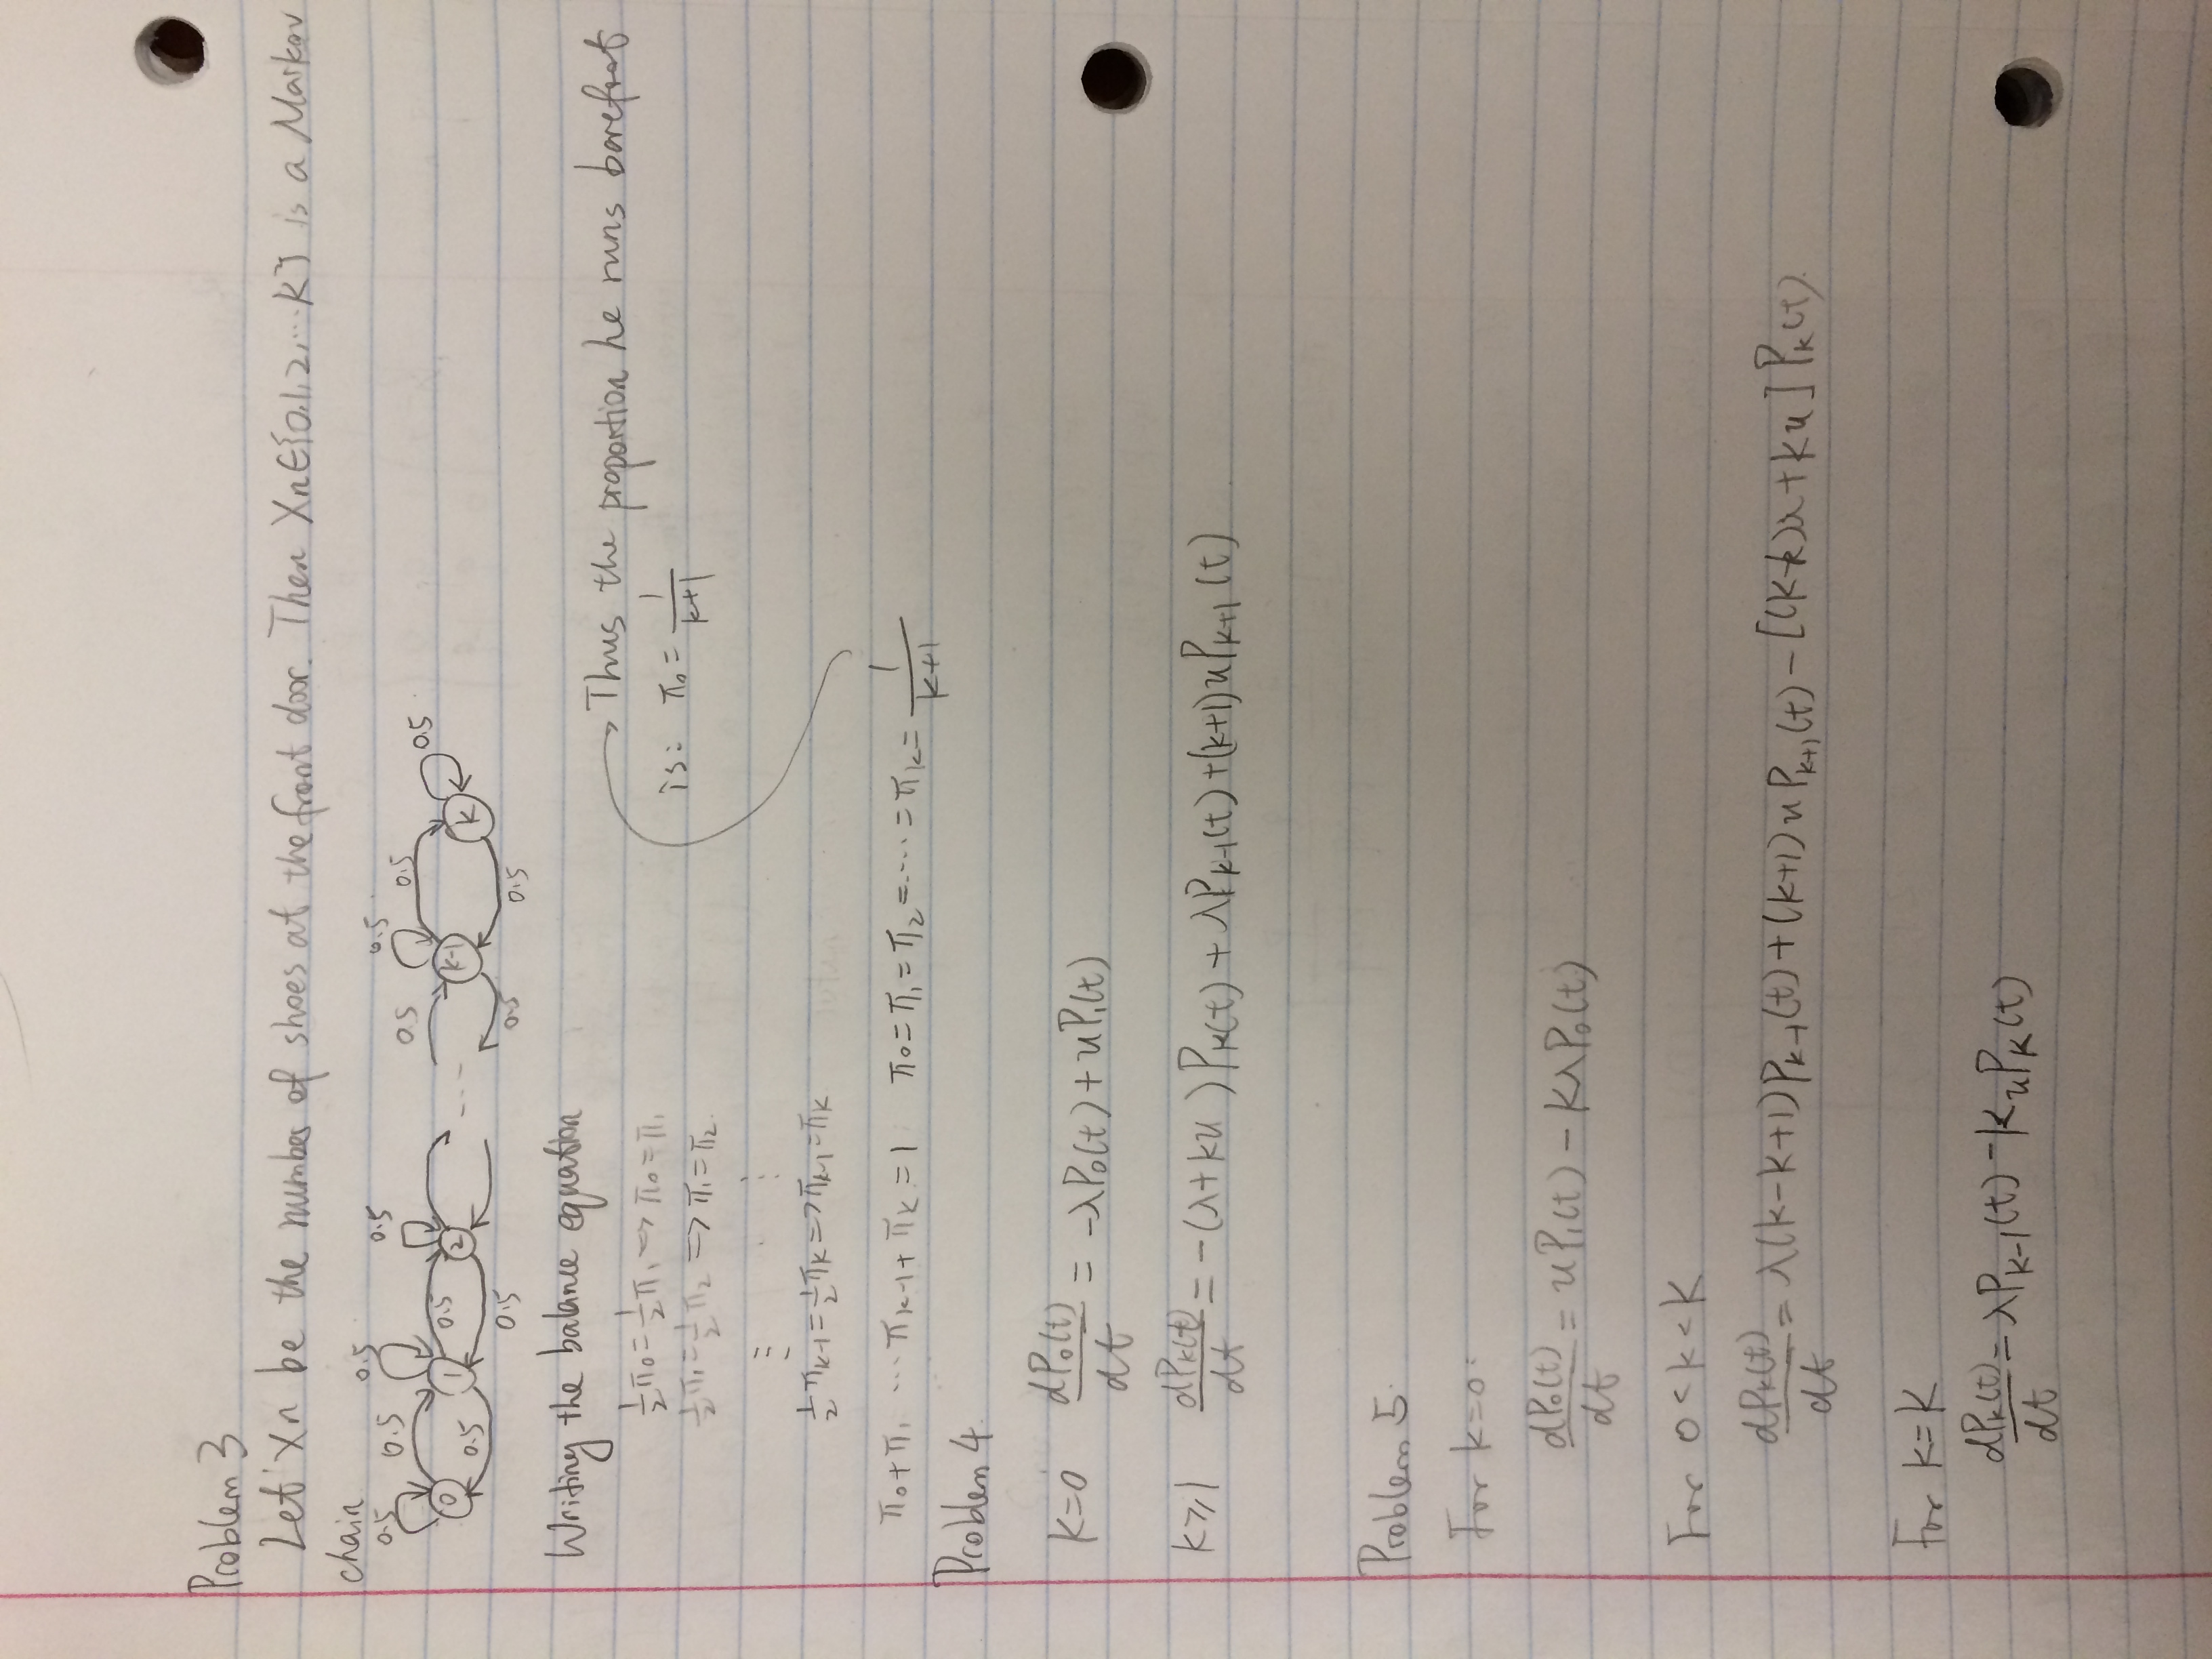 Problem 3
Let Xn be the number of shoes at the front door. Then Xn∈{0,1,2,...K} is a Markov
chain
0.5 0.5 0.5 0.5 0.5 0.5 0.5 0.5
0 1 2 ... k-1 k
0.5 0.5 0.5 0.5 0.5
Writing the balance equation
½π₀=½π₁ => π₀=π₁
½π₁=½π₂ => π₁=π₂.
⋮ ⋮
½πk-1=½πk=>πk-1=πk
π₀+π₁ ...πk-1+πk=1 π₀=π₁=π₂=....=πk=1/(k+1)
Thus the proportion he runs barefoot
is: π₀=1/(k+1)
Problem 4.
K=0 dP₀(t)/dt = -λP₀(t)+uP₁(t)
k≥1 dPk(t)/dt = -(λ+ku)Pk(t)+λPk-1(t)+(k+1)uPk+1(t)
Problem 5.
For k=0:
dP₀(t)/dt = uP₁(t)-KλP₀(t)
For 0<k<K
dPk(t)/dt = λ(k-k+1)Pk-1(t)+(k+1)uPk+1(t)-[(K-k)λ+ku]Pk(t).
For k=K
dPk(t)/dt=λPk-1(t)-kuPk(t)